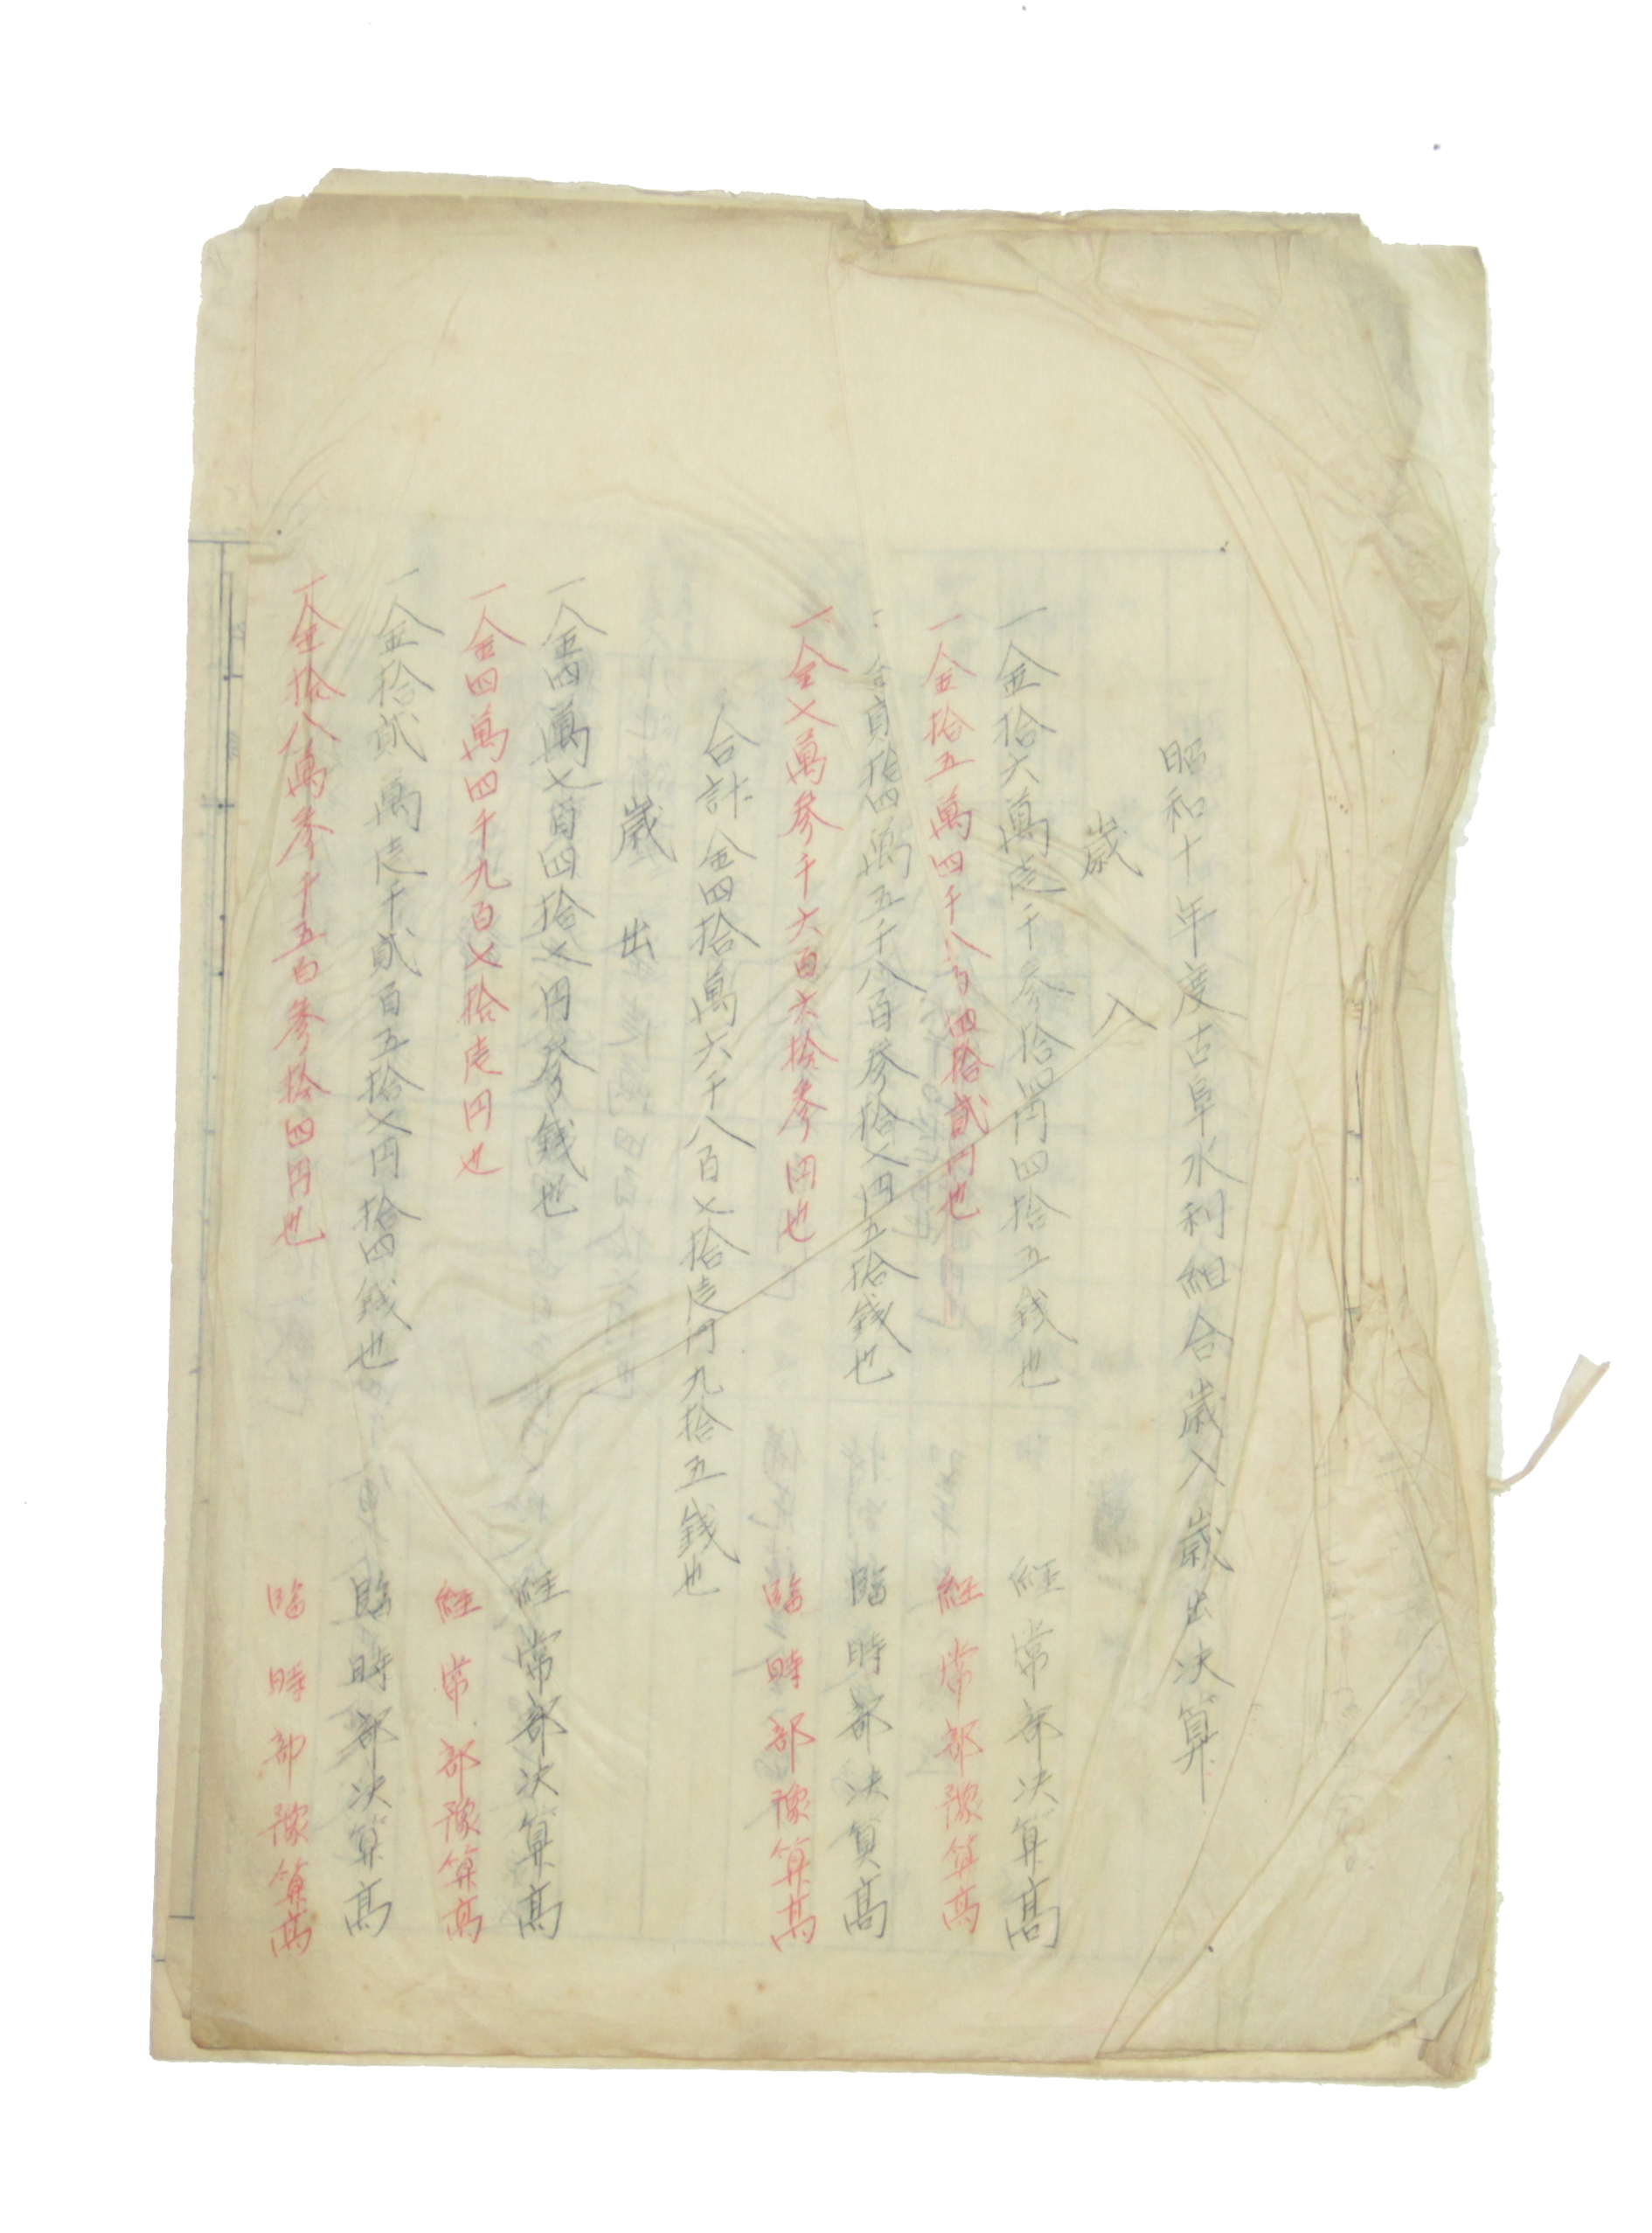 昭和十年度古阜水利組合歳入歳出決算
歳入
一金拾六萬壱千参拾四円四拾五銭也 経常部決算高
一金拾五萬四千八百四拾貳円也 経常部豫算高
一金貳拾四萬五千八百参拾七円五拾銭也 臨時部決算高
一金七萬参千六百六拾参円也 臨時部豫算高
合計金四拾萬六千八百七拾壱円九拾五銭也
歳出
一金四萬七百四拾七円参銭也 経常部決算高
一金四萬四千九百七拾壱円也 経常部豫算高
一金拾貳萬壱千貳百五拾七円拾四銭也 臨時部決算高
一金拾八萬参千五百参拾四円也 臨時部豫算高